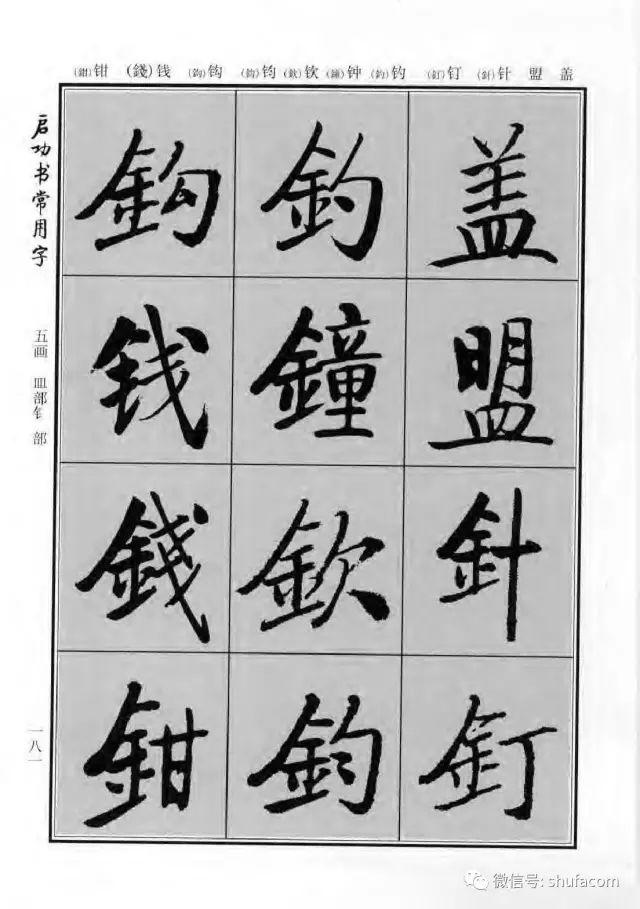 (鉗)钳 (錢)钱 (鈎)钩 (鈞)钧 (欽)钦 (鐘)钟 (釣)钓 (釘)钉 (針)针 盟 盖
盖盟針釘
釣鐘欽鈞
鈎钱錢鉗
启功书常用字
五画 皿部钅部
一八一
微信号: shufacom